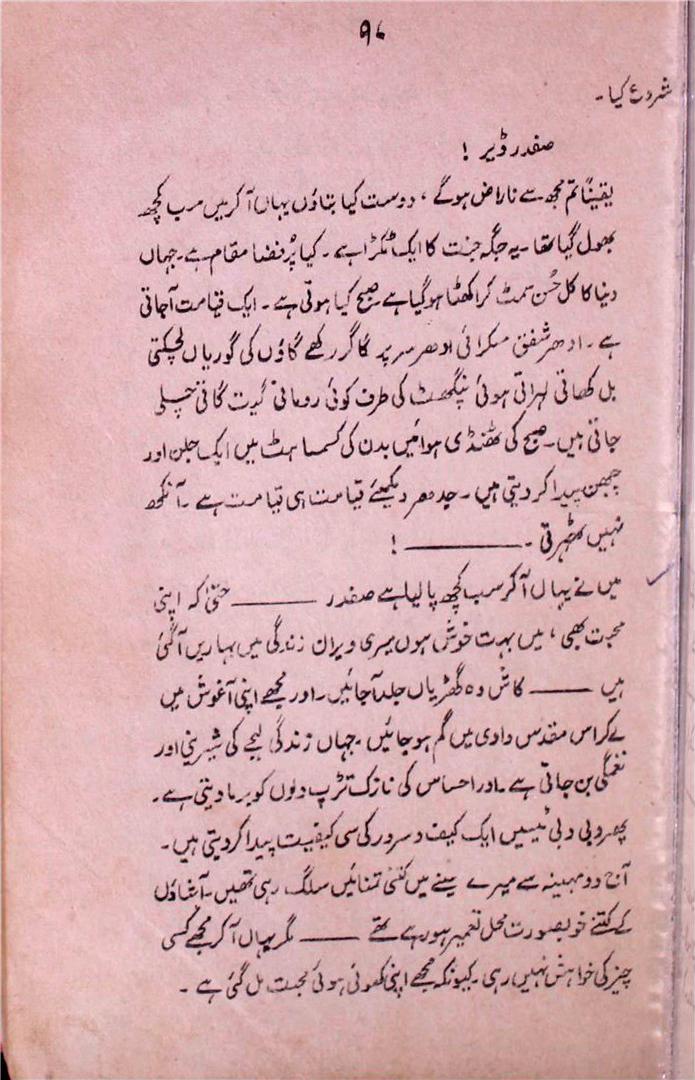 ۹۸
شروع کیا۔
صفدر ڈیر !
یقیناً تم مجھ سے ناراض ہوگے ، دوست کیا بتاؤں یہاں آ کر میں سب کچھ
بھول گیا تھا ۔ یہ جگہ جنت کا ایک ٹکڑا ہے ۔ کیا پُر فضا مقام ہے ۔ جہاں
دنیا کا کل حُسن سمٹ کر اکھٹا ہو گیا ہے صبح کیا ہوتی ہے ۔ ایک قیامت آجاتی
ہے ۔ ادھر شفق مسکرائی ادھر سر پر گاگر رکھے گاؤں کی گوریاں لچکتی
بل کھاتی لہراتی ہوئی پنگھٹ کی طرف کوئی رومانی گیت گاتی چلی
جاتی ہیں ۔ صبح کی ٹھنڈی ہوائیں بدن کی کسمساہٹ میں ایک جلن اور
چبھن پیدا کر دیتی ہیں ۔ جدھر دیکھئے قیامت ہی قیامت ہے ۔ آنکھ
نہیں ٹھہرتی ۔ ——— !
میں نے یہاں آ کر سب کچھ پا لیا ہے صفدر ——— حتیٰ کہ اپنی
محبت بھی ، میں بہت خوش ہوں میری ویران زندگی میں بہاریں آ گئی
ہیں ——— کاش وہ گھڑیاں جلد آجائیں ۔ اور مجھے اپنی آغوش میں
لے کر اس مقدس وادی میں گم ہو جائیں ۔ جہاں زندگی لہجے کی شیرینی اور
نغمگی بن جاتی ہے ۔ اور احساس کی نازک تڑپ دلوں کو برما دیتی ہے ۔
پھر دبی دبی ٹیسیں ایک کیف و سرور کی سی کیفیت پیدا کر دیتی ہیں ۔
آج دو مہینہ سے میرے سینے میں کتنی تمنائیں سلگ رہی تھیں ۔ آشاؤں
کے کتنے خوبصورت محل تعمیر ہو رہے تھے ——— مگر یہاں آ کر مجھے کسی
چیز کی خواہش نہیں رہی ۔ کیونکہ مجھے اپنی کھوئی ہوئی محبت مل گئی ہے ۔